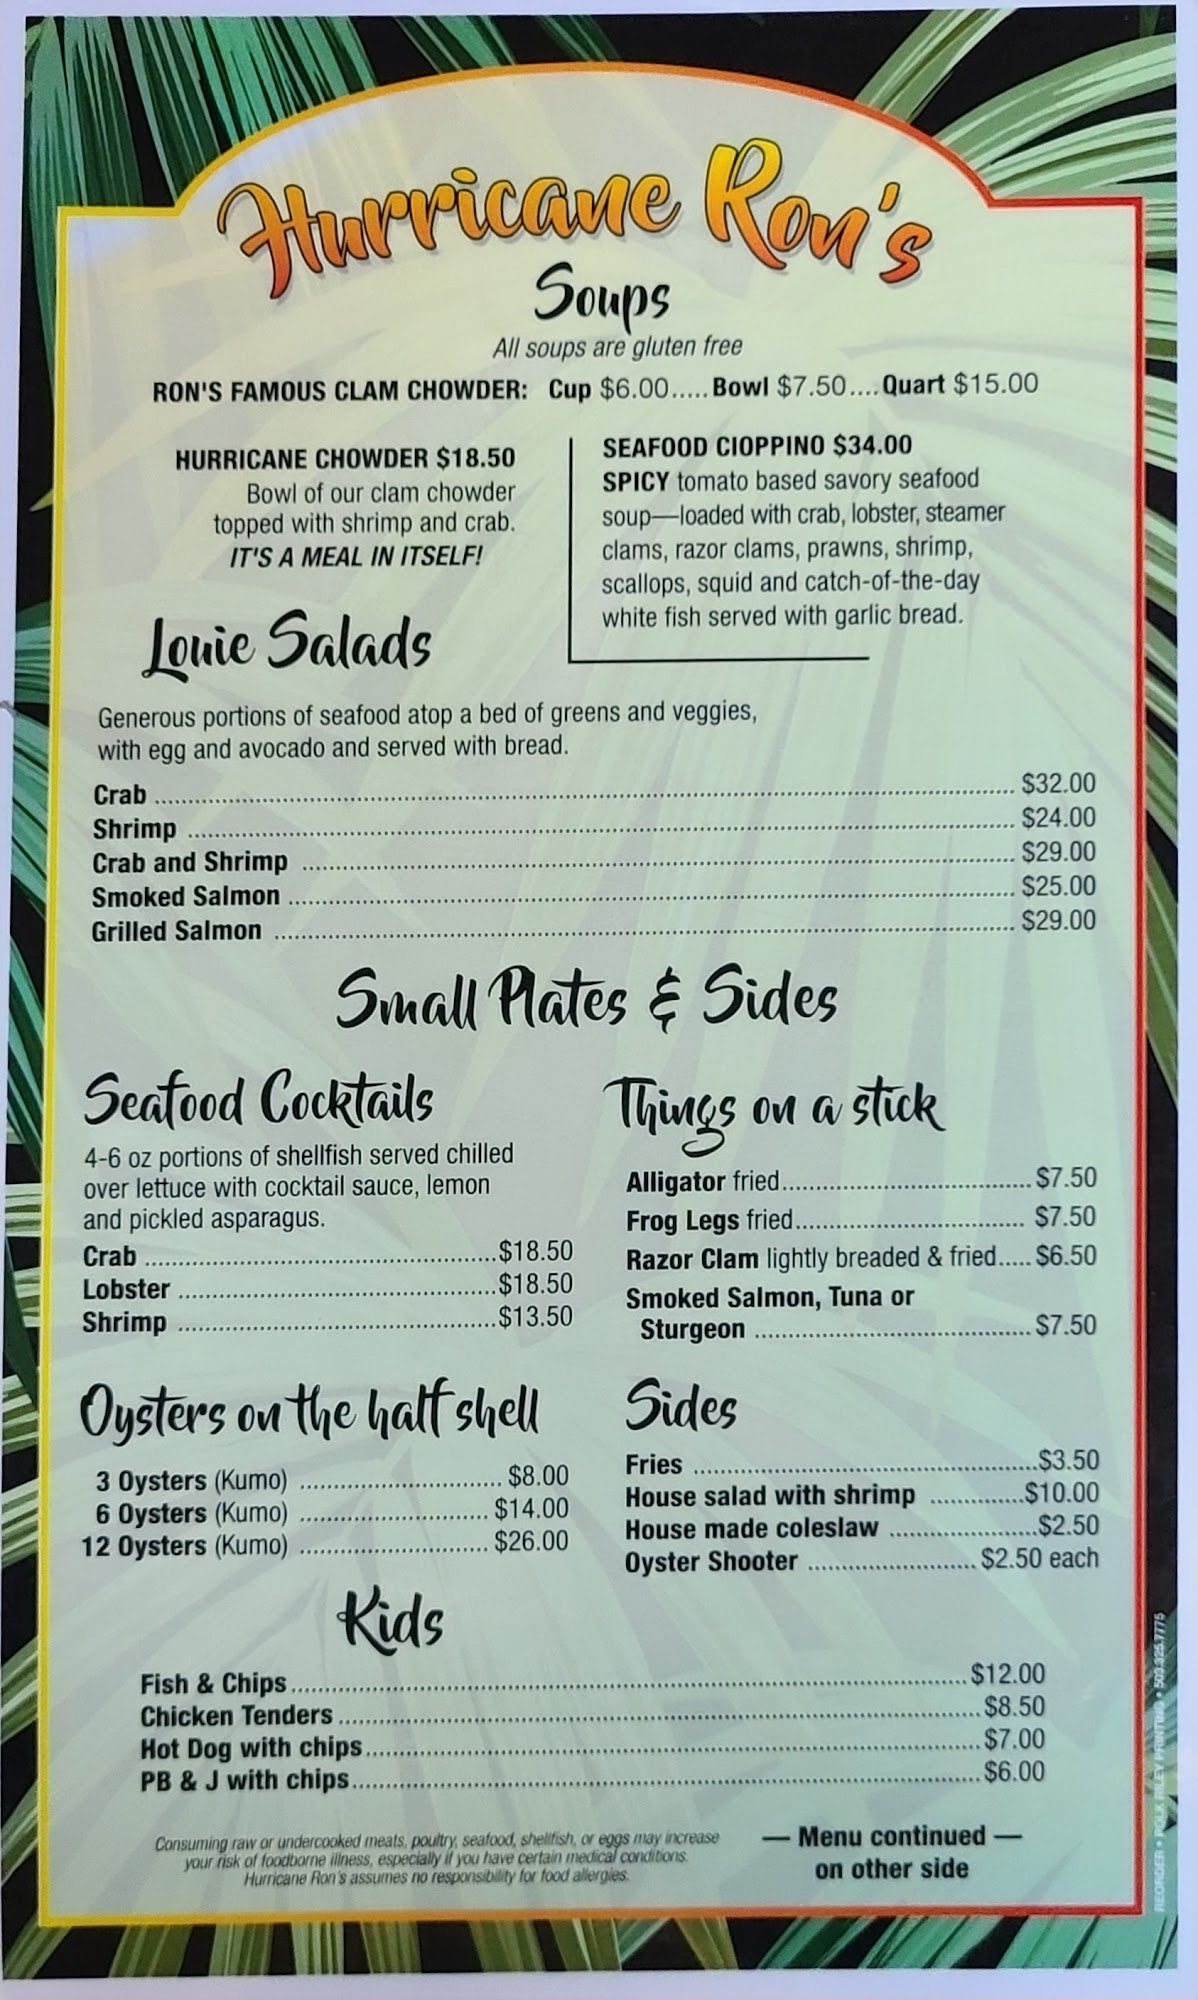 Hurricane Ron's
Soups
All soups are gluten free
RON'S FAMOUS CLAM CHOWDER: Cup $6.00.....Bowl $7.50....Quart $15.00
HURRICANE CHOWDER $18.50
Bowl of our clam chowder
topped with shrimp and crab.
IT'S A MEAL IN ITSELF!
SEAFOOD CIOPPINO $34.00
SPICY tomato based savory seafood
soup—loaded with crab, lobster, steamer
clams, razor clams, prawns, shrimp,
scallops, squid and catch-of-the-day
white fish served with garlic bread.
Louie Salads
Generous portions of seafood atop a bed of greens and veggies,
with egg and avocado and served with bread.
Crab ........ $32.00
Shrimp ........ $24.00
Crab and Shrimp ........ $29.00
Smoked Salmon ........ $25.00
Grilled Salmon ........ $29.00
Small Plates & Sides
Seafood Cocktails
4-6 oz portions of shellfish served chilled
over lettuce with cocktail sauce, lemon
and pickled asparagus.
Crab ........ $18.50
Lobster ........ $18.50
Shrimp ........ $13.50
Things on a stick
Alligator fried........ $7.50
Frog Legs fried........ $7.50
Razor Clam lightly breaded & fried..... $6.50
Smoked Salmon, Tuna or
Sturgeon ........ $7.50
Oysters on the half shell
3 Oysters (Kumo) ........ $8.00
6 Oysters (Kumo) ........ $14.00
12 Oysters (Kumo) ........ $26.00
Sides
Fries ........ $3.50
House salad with shrimp ........ $10.00
House made coleslaw ........ $2.50
Oyster Shooter ........ $2.50 each
Kids
Fish & Chips ........ $12.00
Chicken Tenders ........ $8.50
Hot Dog with chips ........ $7.00
PB & J with chips ........ $6.00
Consuming raw or undercooked meats, poultry, seafood, shellfish, or eggs may increase
your risk of foodborne illness, especially if you have certain medical conditions.
Hurricane Ron's assumes no responsibility for food allergies.
— Menu continued —
on other side
REORDER • POLK RILEY PRINTING • 503.325.7775